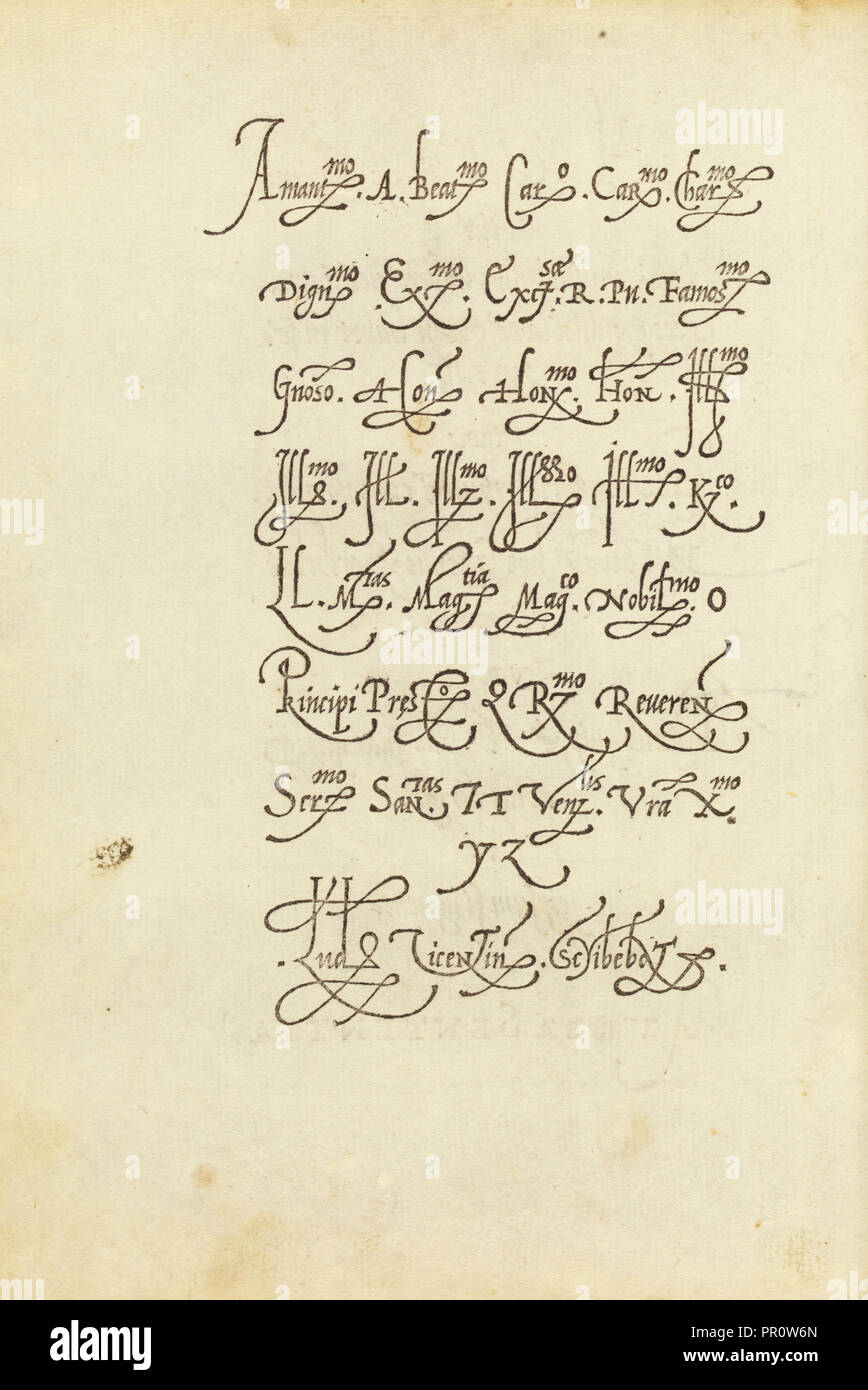 Amant^mo. A. Beat^mo Car^o. Car^mo. Char^mo
Dign^mo Ex^mo. Exc^sa. R. Pu. Famos^mo
Gnoso. Hon Hon^mo. Hon. Ill^mo
Ill^mo. Ill. Ill^mo. Ill^mo Ill^mo. K^co.
LL. M^tas. Mag^tia Mag^co. Nobil^mo. O
Principi Pręst^o Q R^mo Reueren
Ser^mo San^tas. T T Ven^lis. Vra X^mo
y z
. Lud Vicentin. Scribebat.
alamy
Image ID: PR0W6N
www.alamy.com